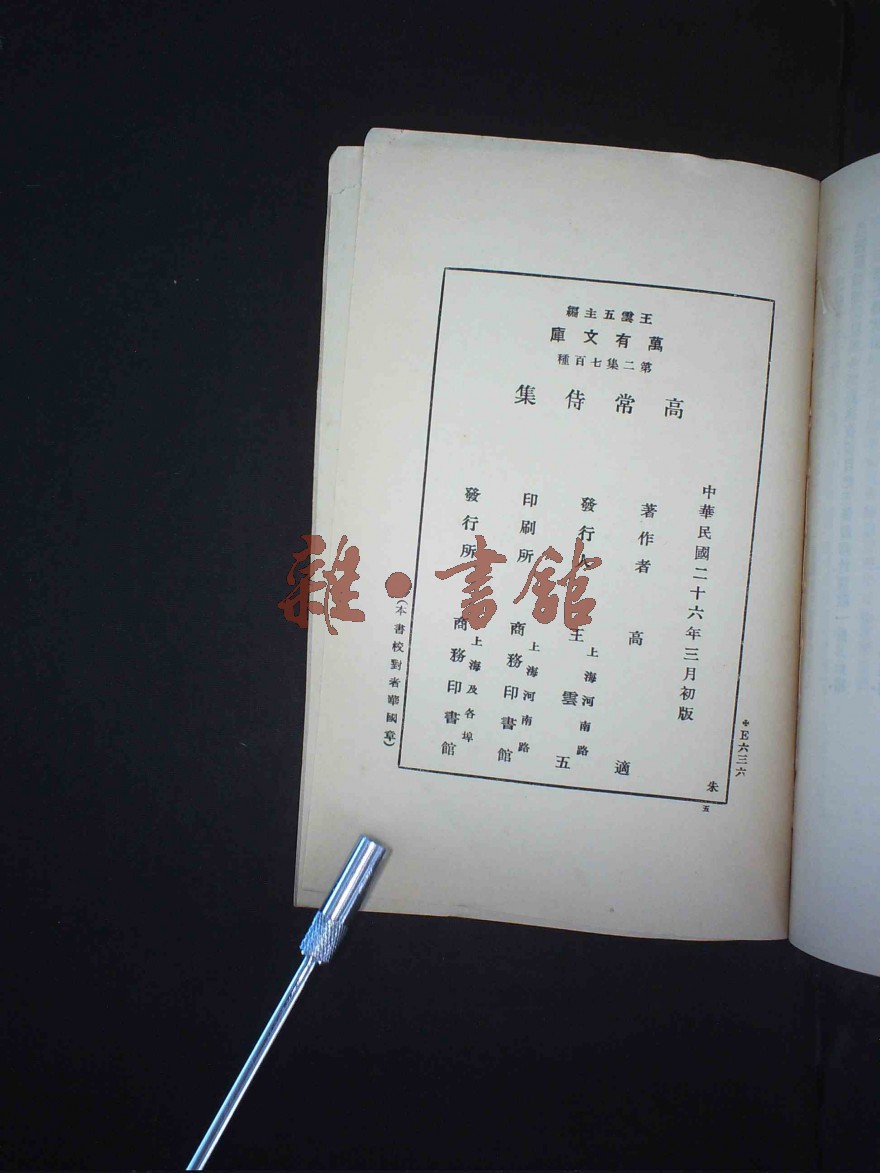 王雲五主編
萬有文庫
第二集七百種
高常侍集
中華民國二十六年三月初版
著作者 高適
發行人 王雲五
上海河南路
印刷所 商務印書館
上海河南路
發行所 商務印書館
上海及各埠
(本書校對者 國章)
✲E六三六
朱
五
雜·書館